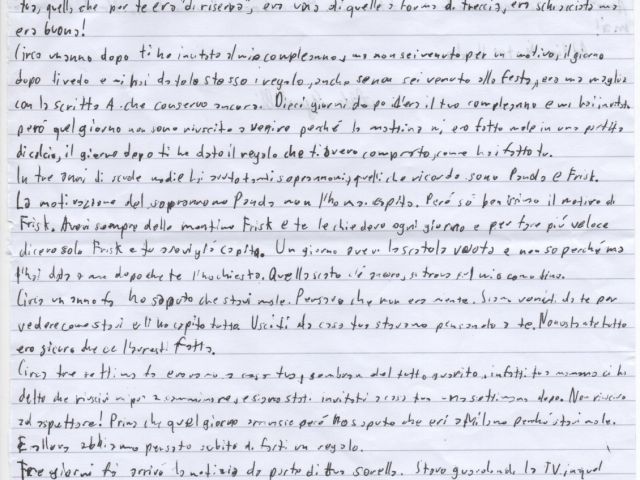 tua, quella che per te era di riserva, era una di quelle a forma di treccia, era schiacciata ma
era buona!
Circa un anno dopo ti ho invitato al mio compleanno, ma non sei venuto per un motivo, il giorno
dopo ti vedo e mi hai dato lo stesso i regalo, anche se non sei venuto alla festa, era una maglia
con la scritta A. che conservo ancora. Dieci giorni dopo c'era il tuo compleanno e mi hai invitato
però quel giorno non sono riuscito a venire perché la mattina mi ero fatto male in una partita
di calcio, il giorno dopo ti ho dato il regalo che ti avevo comprato, come hai fatto tu.
In tre anni di scuole medie hai avuto tanti soprannomi, quelli che ricordo sono Panda e Frisk.
La motivazione del soprannome Panda non l'ho mai capita. Però so benissimo il motivo di
Frisk. Avevi sempre delle mentine Frisk e te le chiedevo ogni giorno e per fare più veloce
dicevo solo Frisk e tu avevi già capito. Un giorno avevi la scatola vuota e non so perché ma
l'hai data a me dopo che te l'ho chiesta. Quella scatola c'è ancora, si trova sul mio comodino.
Circa un anno fa ho saputo che stavi male. Pensavo che non era niente. Siamo venuti da te per
vedere come stavi e lì ho capito tutto. Usciti da casa tua stavamo pensando a te. Nonostante tutto
ero sicuro che ce l'avresti fatta.
Circa tre settimane fa eravamo a casa tua, sembrava del tutto guarito, infatti tua mamma ci ha
detto che riuscivi a camminare, e siamo stati invitati a casa tua una settimana dopo. Non riuscivo
ad aspettare! Prima che quel giorno arrivasse però ho saputo che eri a Milano perché stavi male.
E allora abbiamo pensato subito di farti un regalo.
Tre giorni fa arriva la notizia da parte di tua sorella. Stavo guardando la TV, in quel